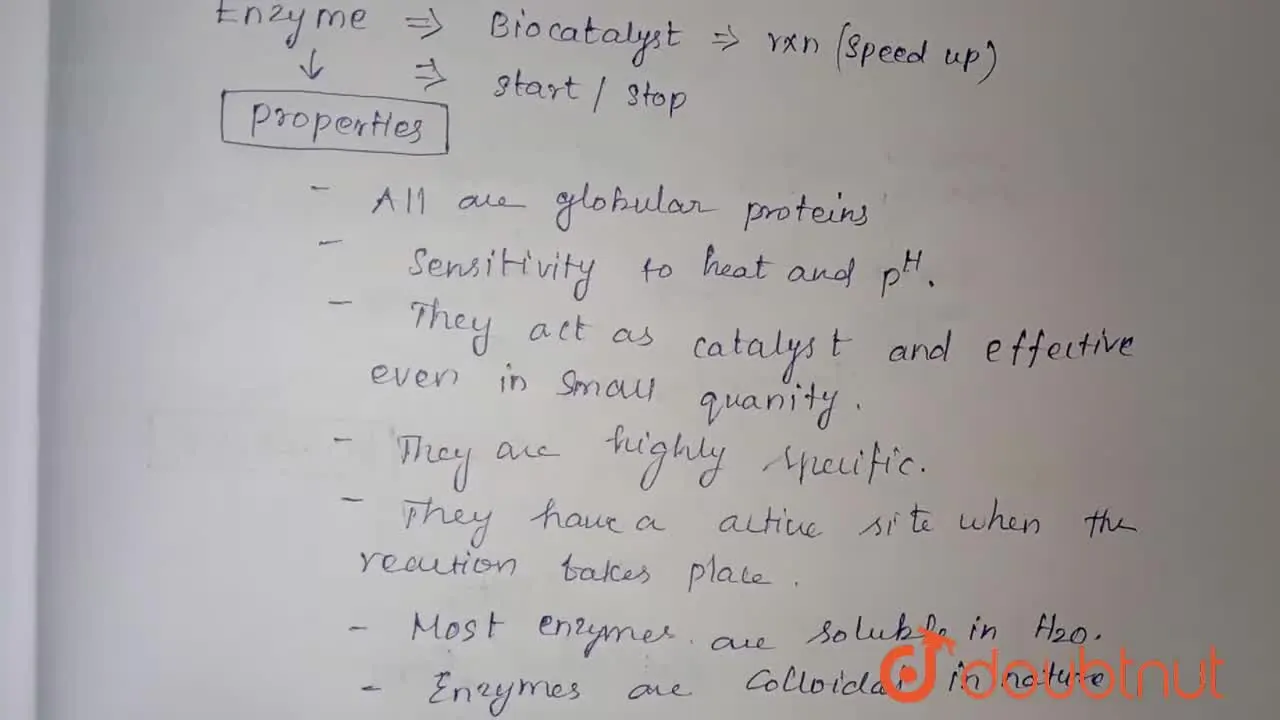 Enzyme => Biocatalyst => rxn (speed up)
↓ => start / stop
Properties
- All are globular proteins
- Sensitivity to heat and pH.
- They act as catalyst and effective
even in small quanity.
- They are highly specific.
- They have a active site when the
reaction takes place.
- Most enzymes are soluble in H2O.
- Enzymes are colloidal in nature
doubtnut